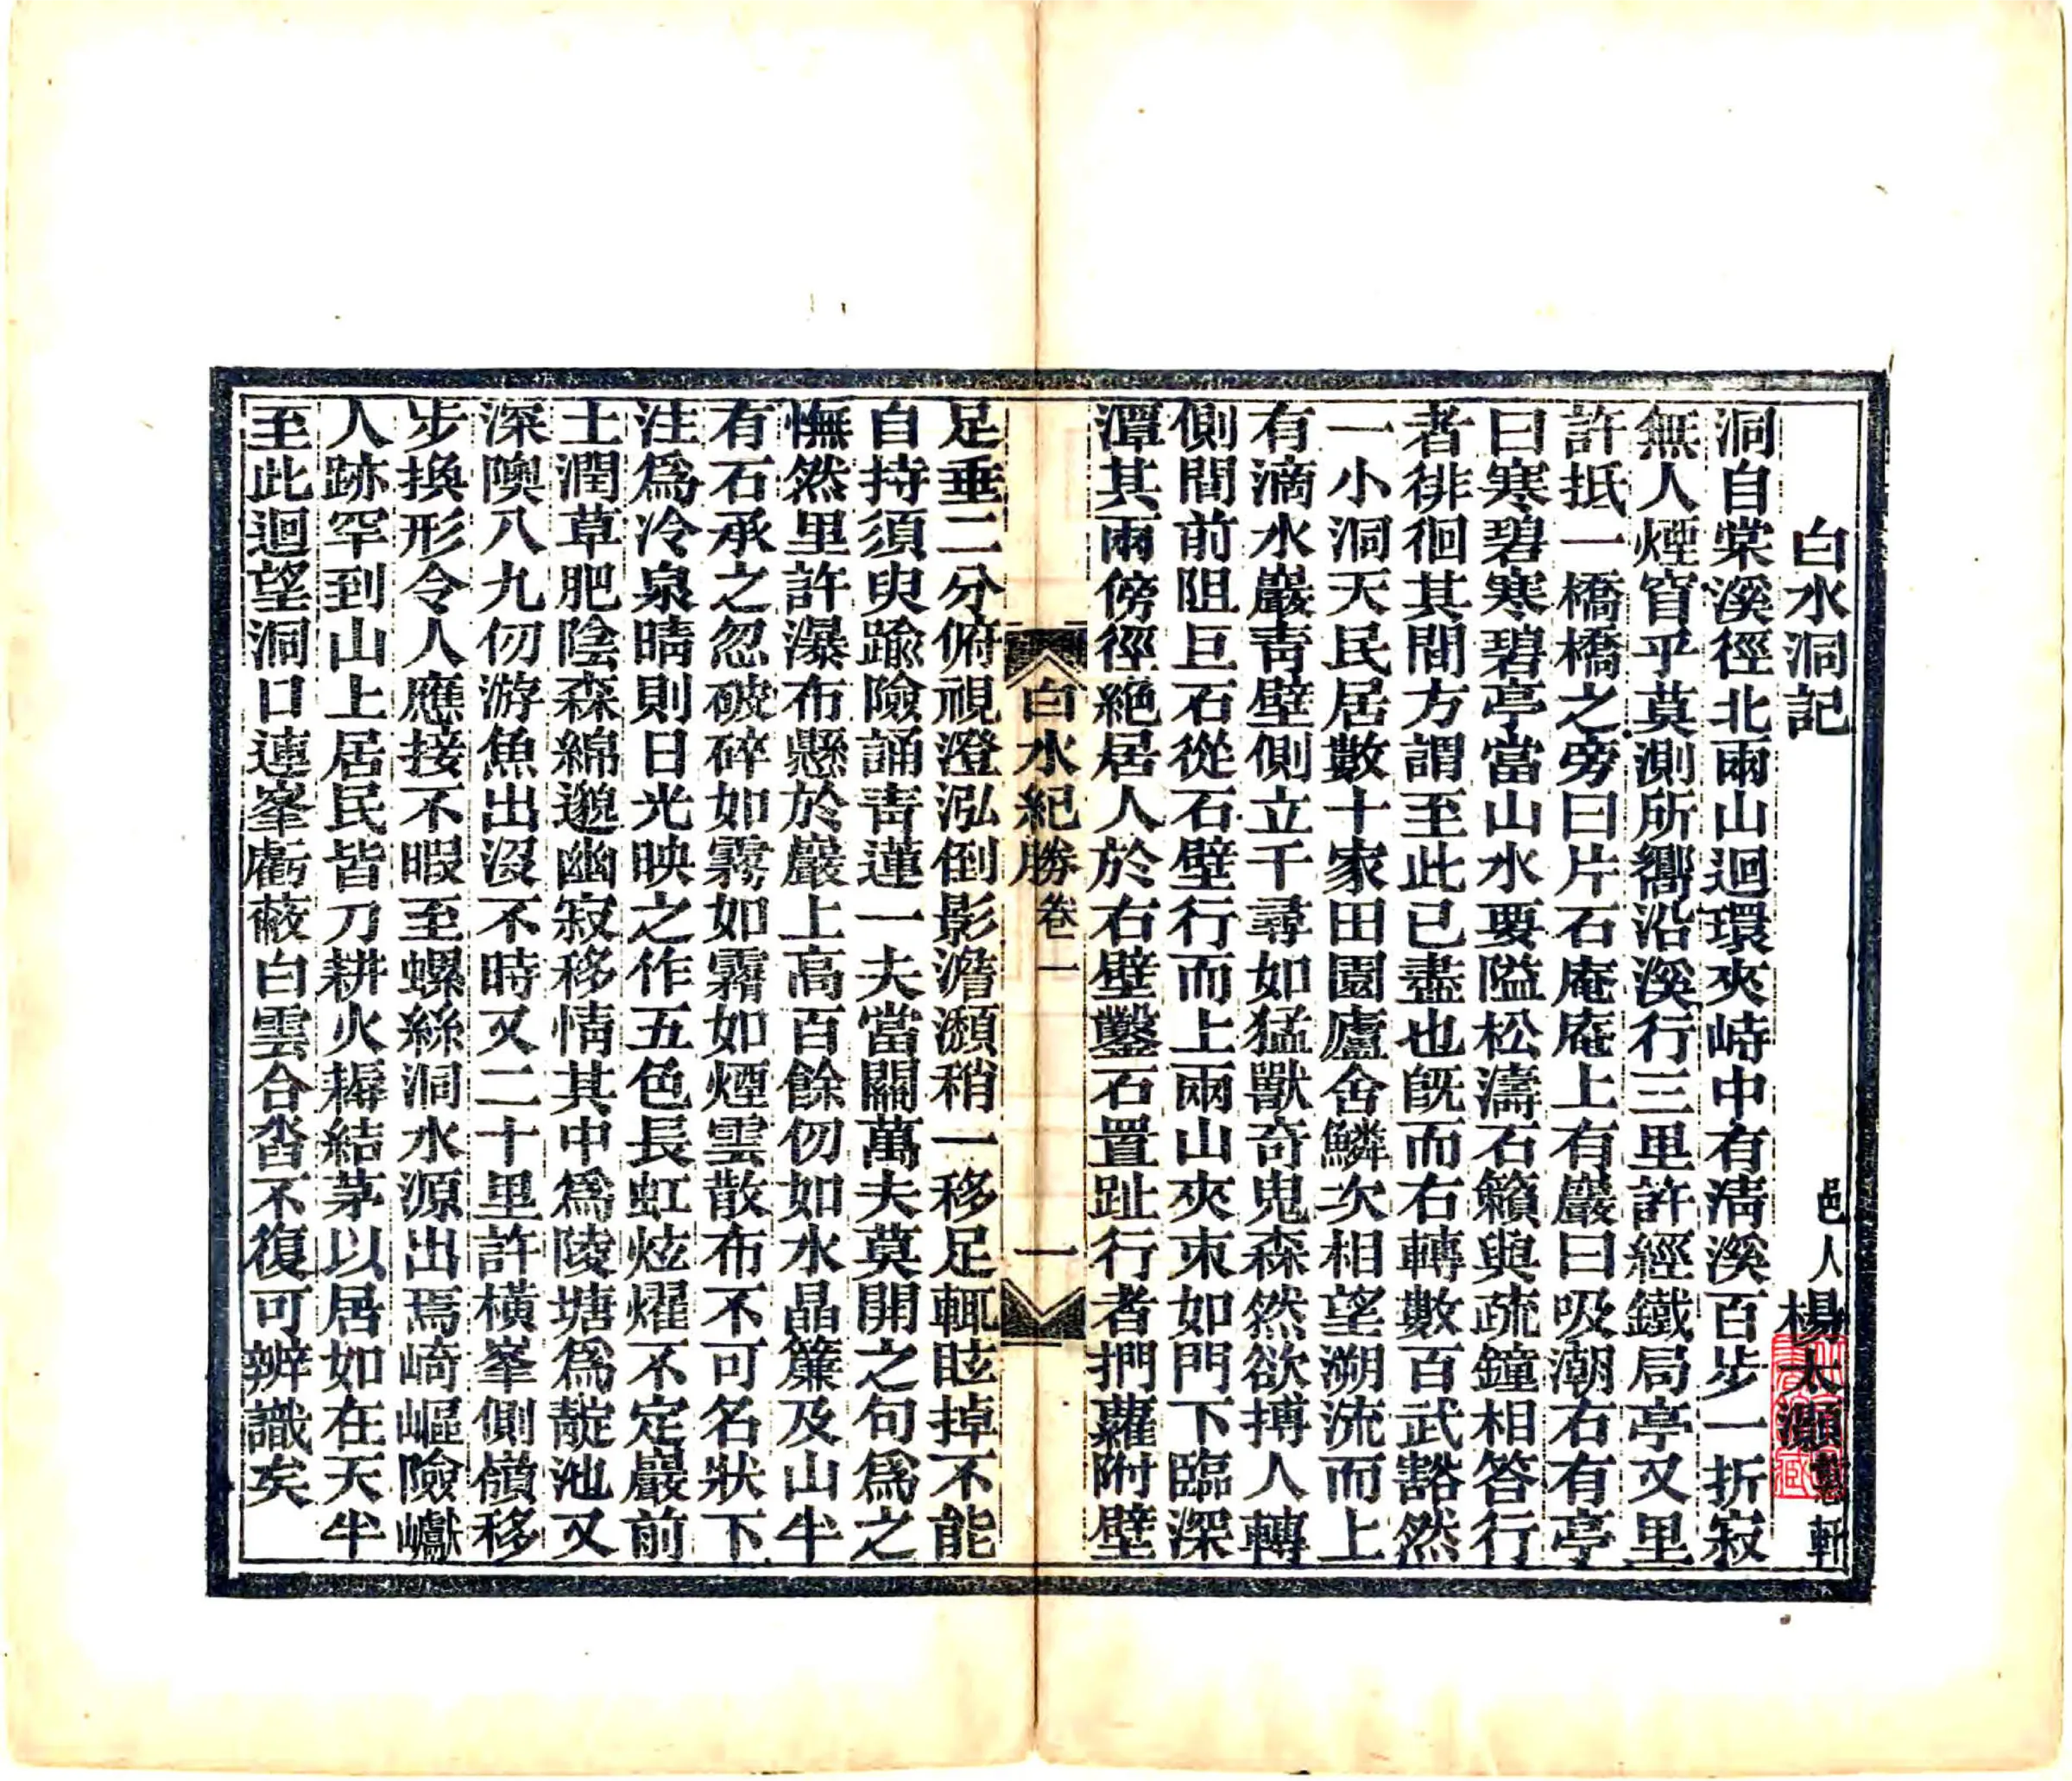 白水洞記
邑人楊太灝軒
洞自棠溪徑北兩山迴環夾峙中有清溪百步一折寂
無人煙窅乎莫測所嚮沿溪行三里許經鐵局亭又里
許抵一橋橋之旁曰片石庵庵上有巖曰吸潮右有亭
曰寒碧寒碧亭當山水要隘松濤石籟與疏鐘相答行
者徘徊其間方謂至此已盡也旣而右轉數百武豁然
一小洞天民居數十家田園廬舍鱗次相望溯流而上
有滴水巖靑壁側立千尋如猛獸奇鬼森然欲搏人轉
側間前阻巨石從石壁行而上兩山夾束如門下臨深
潭其兩傍徑絶居人於右壁鑿石置趾行者捫蘿附壁
足垂二分俯視澄泓倒影澹灝稍一移足輒眩掉不能
自持須臾踰險誦靑蓮一夫當關萬夫莫開之句爲之
憮然里許瀑布懸於巖上高百餘仞如水晶簾及山半
有石承之忽破碎如霧如霫如煙雲散布不可名狀下
注爲冷泉晴則日光映之作五色長虹炫燿不定巖前
土潤草肥陰森綿邈幽寂移情其中爲陵塘爲靛池又
深隩八九仞游魚出沒不時又二十里許橫峯側嶺移
步換形令人應接不暇至螺絲洞水源出焉崎嶇險巘
人跡罕到山上居民皆刀耕火耨結茅以居如在天半
至此迴望洞口連峯虧蔽白雲合沓不復可辨識矣
白水紀勝卷一
一